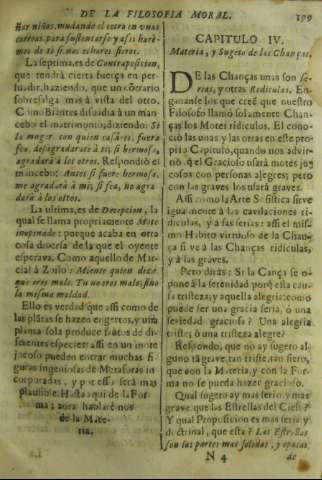 DE LA FILOSOFIA MORAL. 199
dar niños, mudando el otro en unas
La septima, es de Contraposicion,
que tendrá cierta fuerça en per-
suadir, haziendo, que un cõtrario
sobresalga mas à vista del otro.
Como Biantes disuadia à un man-
cebo el matrimonio, diziendo: Si
la muger con quien casàres, fuere
fea, desagradarate à ti; si hermosa,
agradarà à los otros. Respondiò el
mancebo: Antes si fuere hermosa,
me agradarà à mi; si fea, no agra-
darà à los otros.
La ultima, es de Decepcion, la
qual se llama propriamente Mote
inopinado: porque acaba en otra
cosa diversa de la que el oyente
esperava. Como aquello de Mar-
cial à Zoilo: Miente quien dize
que eres malo: Tu no eres malo, sino
la misma maldad.
Ello es verdad que assi como de
las plãtas se hazen engertos, y una
planta sola produce frutos de di-
ferentes especies: assi en un mote
jocoso pueden entrar muchas fi-
guras ingeniosas de Metaforas in-
corporadas, y por esso serà mas
plausible. Hasta aqui de la For-
ma: aora hablarèmos
de la Mate-
ria.
CAPITULO IV.
Materia, y Sugeto de las Chanças.
DE las Chanças unas son Se-
rias, y otras Rediculas. En-
gananse los que creê que nuestro
Filosofo llamó solamente Chan-
ças los Motes ridiculos. El cono-
ciò las unas y las otras en este pro-
pio Capitulo, quando nos advir-
niò, q̃ el Gracioso usarà motes jo-
cosos con personas alegres; pero
con las graves los usarà graves.
Assi como la Arte Sofistica sirve
igualmente à las cavilaciones ri-
diculas, y à las serias: assi el mis-
mo Habito virtuoso de la Chan-
ça sirve à las Chanças ridiculas,
y à las graves.
Pero dirás: Si la Cança se o-
pone à la serenidad porq̃ esta cau-
sa tristeza; y aquella alegria: como
puede ser una gracia seria, ò una
seriedad graciosa? Una alegria
triste; ò una tristeza alegre?
Respondo, que no ay sugeto al-
guno tã grave, tan triste, tan fiero,
que con la Materia, y con la For-
ma no se pueda hazer gracioso.
Qual sugeto ay mas serio y mas
grave que las Estrellas del Cielo?
Y qual Proposicion es mas seria y
doctrinal, que esta? Las Estrellas
son las partes mas solidas, y opacas
N 4 de